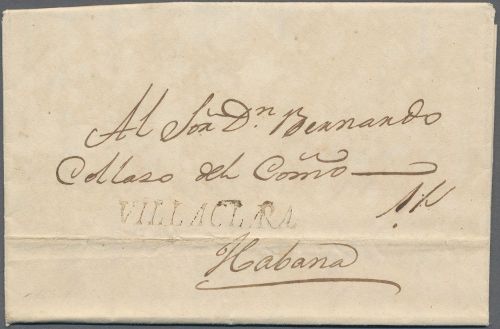 Al Sõr Dn. Bernardo
Collaso del Comõ
VILLACLARA
Habana